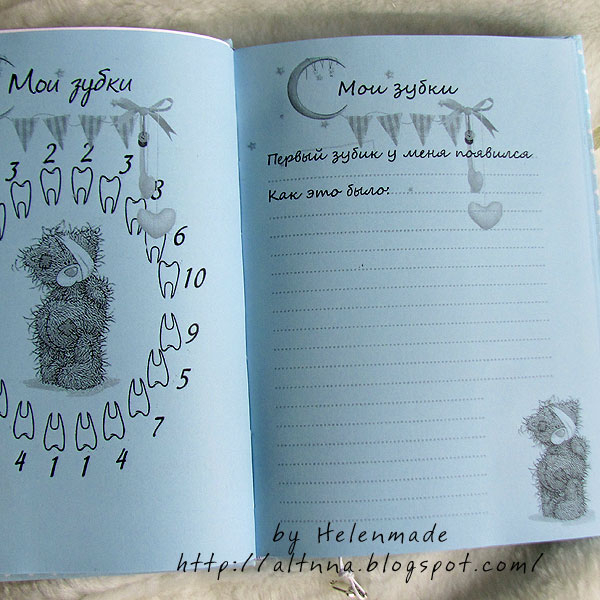 Мои зубки
3 2 2 3
3
6
10
9
5
7
4 1 1 4
Мои зубки
Первый зубик у меня появился
Как это было:
by Helenmade
http://altnna.blogspot.com/